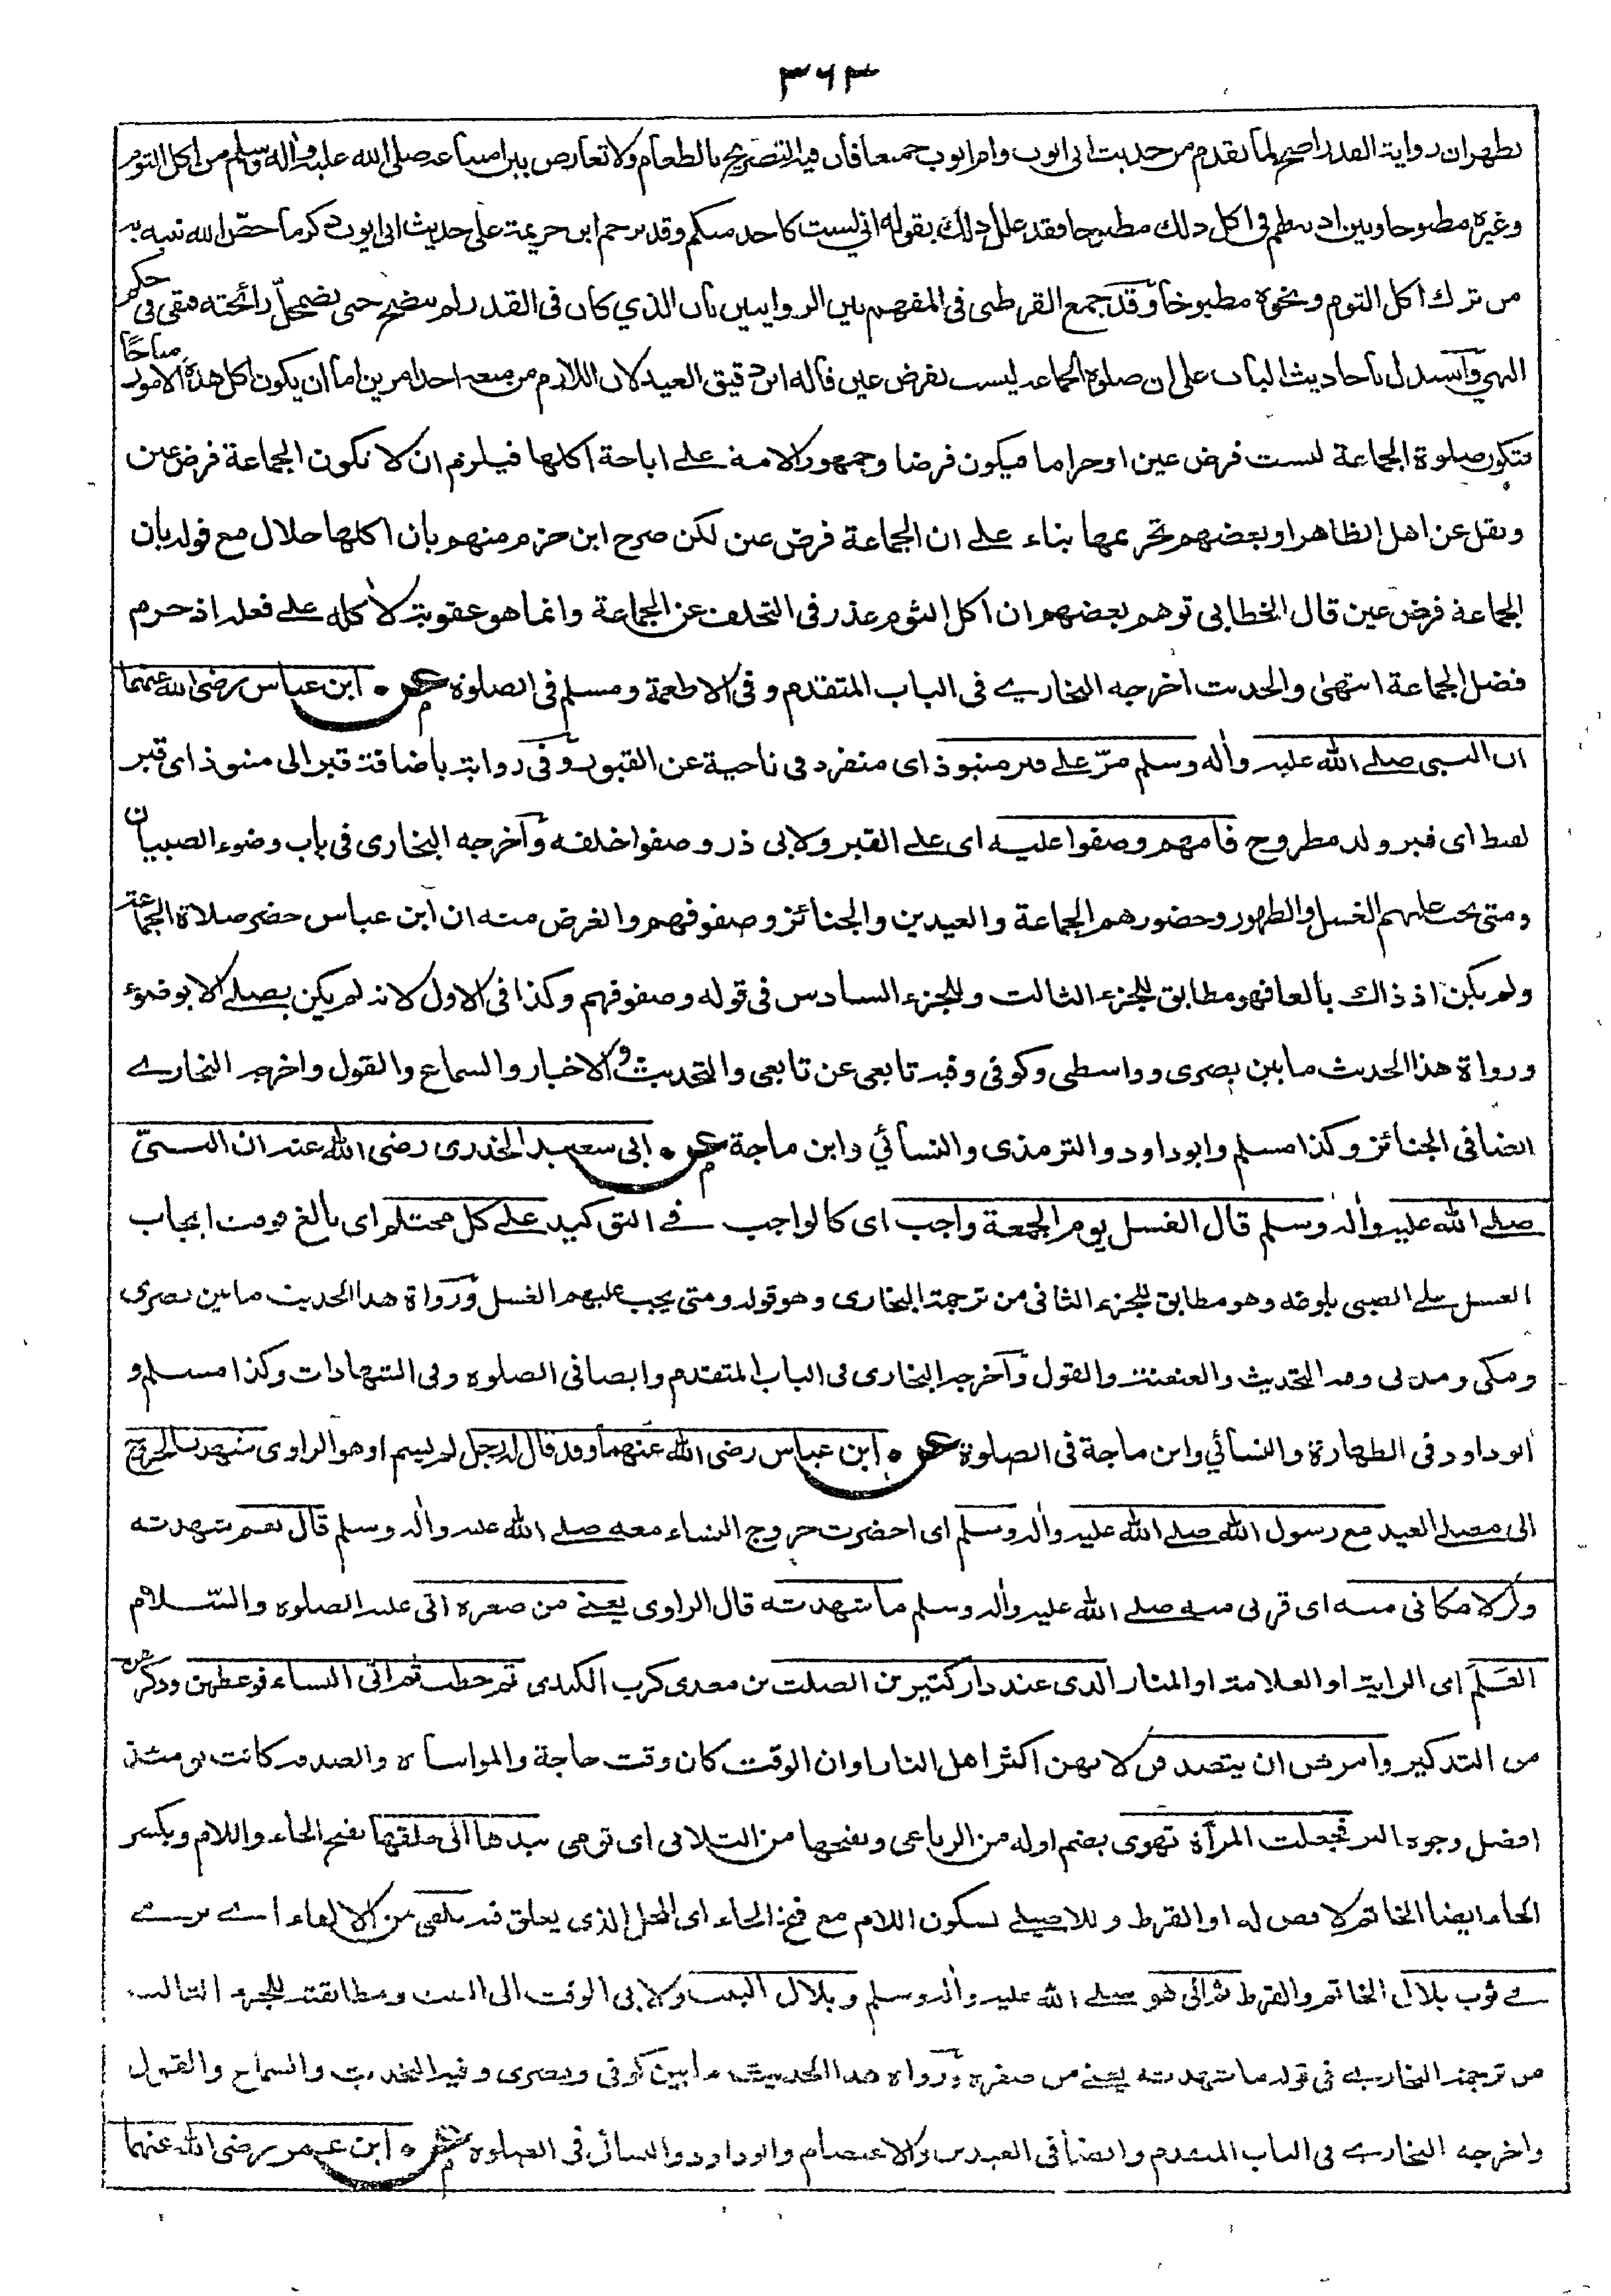 ٣٦٣
يظهر ان رواية القدر اصح لما تقدم من حديث ابى ايوب وام ايوب جميعا فان فيه التصريح بالطعام ولا تعارض بين امتناعه صلى الله عليه واله وسلم من اكل الثوم
وغيره مطبوخا وبين اذنه لهم فى اكل ذلك مطبوخا فقد علل ذلك بقوله انى لست كاحد منكم وقد ترجم ابن خزيمة على حديث ابى ايوب ذكر ما خصّ الله نبيه به
من ترك اكل الثوم ونحوه مطبوخا وقد جمع القرطبى فى المفهم بين الروايتين بان الذي كان فى القدر لم ينضج حتى تضمحلّ رائحته فبقى فى حكم
النهي واستدل باحاديث الباب على ان صلوة الجماعة ليست بفرض عين قاله ابن دقيق العيد لان اللازم من منعه احد امرين اما ان يكون اكل هذه الامور مباحًا
فتكون صلوة الجماعة ليست فرض عين او حراما فيكون فرضا وجمهور الامة على اباحة اكلها فيلزم ان لا تكون الجماعة فرض عين
ونقل عن اهل الظاهر او بعضهم تحريمها بناء على ان الجماعة فرض عين لكن صرح ابن حزم منهم بان اكلها حلال مع قوله بان
الجماعة فرض عين قال الخطابى توهم بعضهم ان اكل الثوم عذر فى التخلف عن الجماعة وانما هو عقوبة لأكله على فعله اذ حرم
فضل الجماعة انتهى والحديث اخرجه البخارى فى الباب المتقدم وفى الاطعمة ومسلم فى الصلوة عن ابن عباس رضى الله عنهما
ان النبى صلى الله عليه واله وسلم مرّ على قبر منبوذ اى منفرد فى ناحية عن القبور وفى رواية باضافة قبر الى منبوذ اى قبر
لقيط اى قبر ولد مطروح فامهم وصفوا عليه اى على القبر ولابى ذر وصفوا خلفه وآخرجه البخارى فى باب وضوء الصبيان
ومتى يجب عليهم الغسل والطهور وحضورهم الجماعة والعيدين والجنائز وصفوفهم والغرض منه ان ابن عباس حضر صلاة الجماعة
ولم يكن اذ ذاك بالغا فهو مطابق للجزء الثالث وللجزء السادس فى قوله وصفوفهم وكذا فى الاول لانه لم يكن يصلى الا بوضوء
ورواة هذا الحديث ما بين بصرى وواسطى وكوفى وفيه تابعى عن تابعى والتحديث والاخبار والسماع والقول واخرجه البخارى
ايضا فى الجنائز وكذا مسلم وابو داود والترمذى والنسائي وابن ماجة عن ابى سعيد الخدرى رضى الله عنه ان النبيّ
صلى الله عليه واله وسلم قال الغسل يوم الجمعة واجب اى كالواجب فى التوكيد على كل محتلم اى بالغ فوقت ايجاب
الغسل على الصبى بلوغه وهو مطابق للجزء الثانى من ترجمة البخارى وهو قوله ومتى يجب عليهم الغسل ورواة هذا الحديث ما بين بصرى
ومكى ومدنى وفيه التحديث والعنعنة والقول وآخرجه البخارى فى الباب المتقدم وايضا فى الصلوة وفى الشهادات وكذا مسلم و
ابو داود فى الطهارة والنسائي وابن ماجة فى الصلوة عن ابن عباس رضى الله عنهما وقد قال له رجل لم يسم او هو الراوى شهدت الخروج
الى مصلى العيد مع رسول الله صلى الله عليه واله وسلم اى احضرت خروج النساء معه صلى الله عليه واله وسلم قال نعم شهدته
ولولا مكانى منه اى قربى منه صلى الله عليه واله وسلم ما شهدته قال الراوى يعنى من صغره اتى عليه الصلوة والسّلام
العَلَم اى الراية او العلامة او المنار الذى عند دار كثير بن الصلت بن معدى كرب الكندى ثم خطب ثم اتى النساء فوعظهن وذكرهن
من التذكير وامرهن ان يتصدقن لانهن اكثر اهل النار او ان الوقت كان وقت حاجة والمواساة والصدقة كانت يومئذ
افضل وجوه البر فجعلت المرأة تهوى بضم اوله من الرباعى وبفتحها من الثلاثى اى تومى بيدها الى حلقها بفتح الحاء واللام وبكسر
الحاء ايضا الخاتم لا فص له او القرط وللاصيلى بسكون اللام مع فتح الحاء اى المحل الذى يعلق فيه تلقى من الالقاء اى ترمى
فى ثوب بلال الخاتم والقرط ثم اتى هو صلى الله عليه واله وسلم وبلال البيت ولابى الوقت الى البيت ومطابقته للجزء الثالث
من ترجمة البخارى فى قوله ما شهدته يعنى من صغره ورواة هذا الحديث ما بين كوفى وبصرى وفيه التحديث والسماع والقول
واخرجه البخارى فى الباب المتقدم وايضا فى العيدين والاعتصام وابو داود والنسائى فى الصلوة عن ابن عمر رضى الله عنهما